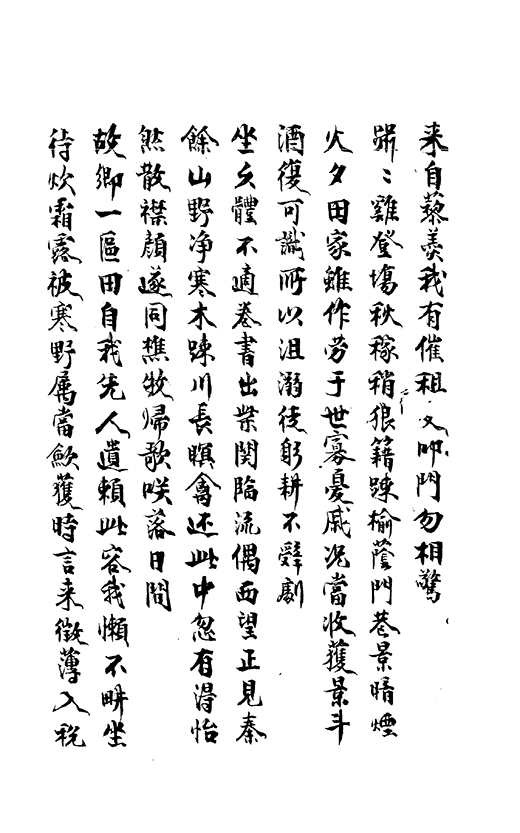 来自藜羹我有催租文叩門勿相驚
喈〻雞登塲秋稼稍狼籍踈榆蔭門巷景暗煙
火夕田家雖作劳于世寡憂戚况當收獲景斗
酒復可識所以沮溺徒躬耕不辤劇
坐久體不適卷書出柴関臨流偶西望正見秦
餘山野净寒木踈川長暝禽还此中忽有得怡
然散襟顔遂同樵牧歸歌咲落日間
故鄉一區田自我先人遺頼此容我懶不畊坐
待炊霜露被寒野属當斂獲時言来徵薄入税